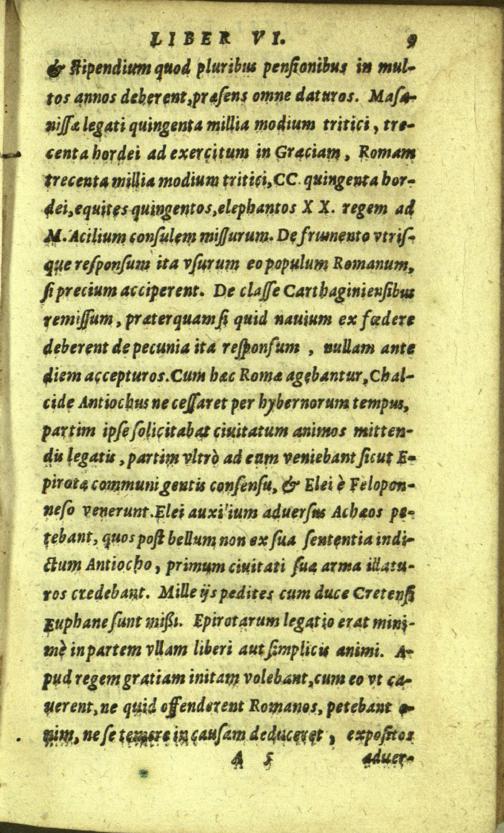 LIBER VI. 9
& stipendium quod pluribus pensionibus in mul-
tos annos deberent, præsens omne daturos. Masa-
nissæ legati quingenta millia modium tritici, tre-
centa hordei ad exercitum in Græciam, Romam
trecenta millia modium tritici, CC. quingenta hor-
dei, equites quingentos, elephantos XX. regem ad
M. Acilium consulem missurum. De frumento vtris-
que responsum ita vsurum eo populum Romanum,
si precium acciperent. De classe Carthaginiensibus
remissum, præterquam si quid nauium ex fœdere
deberent de pecunia ita responsum, nullam ante
diem accepturos. Cum hæc Romæ agebantur, Chal-
cide Antiochus ne cessaret per hybernorum tempus,
partim ipse solicitabat ciuitatum animos mitten-
dis legatis, partim vltrò ad eum veniebant sicut E-
pirotæ communi gentis consensu, & Elei è Felopon-
neso venerunt. Elei auxilium aduersus Achæos pe-
tebant, quos post bellum non ex sua sententia indi-
ctum Antiocho, primum ciuitati sua arma illatu-
ros credebant. Mille ijs pedites cum duce Cretensi
Euphane sunt mißi. Epirotarum legatio erat mini-
mè in partem vllam liberi aut simplicis animi. A-
pud regem gratiam initam volebant, cum eo vt ca-
uerent, ne quid offenderent Romanos, petebant e-
nim, ne se temere in causam deduceret, expositos
A 5 aduer-